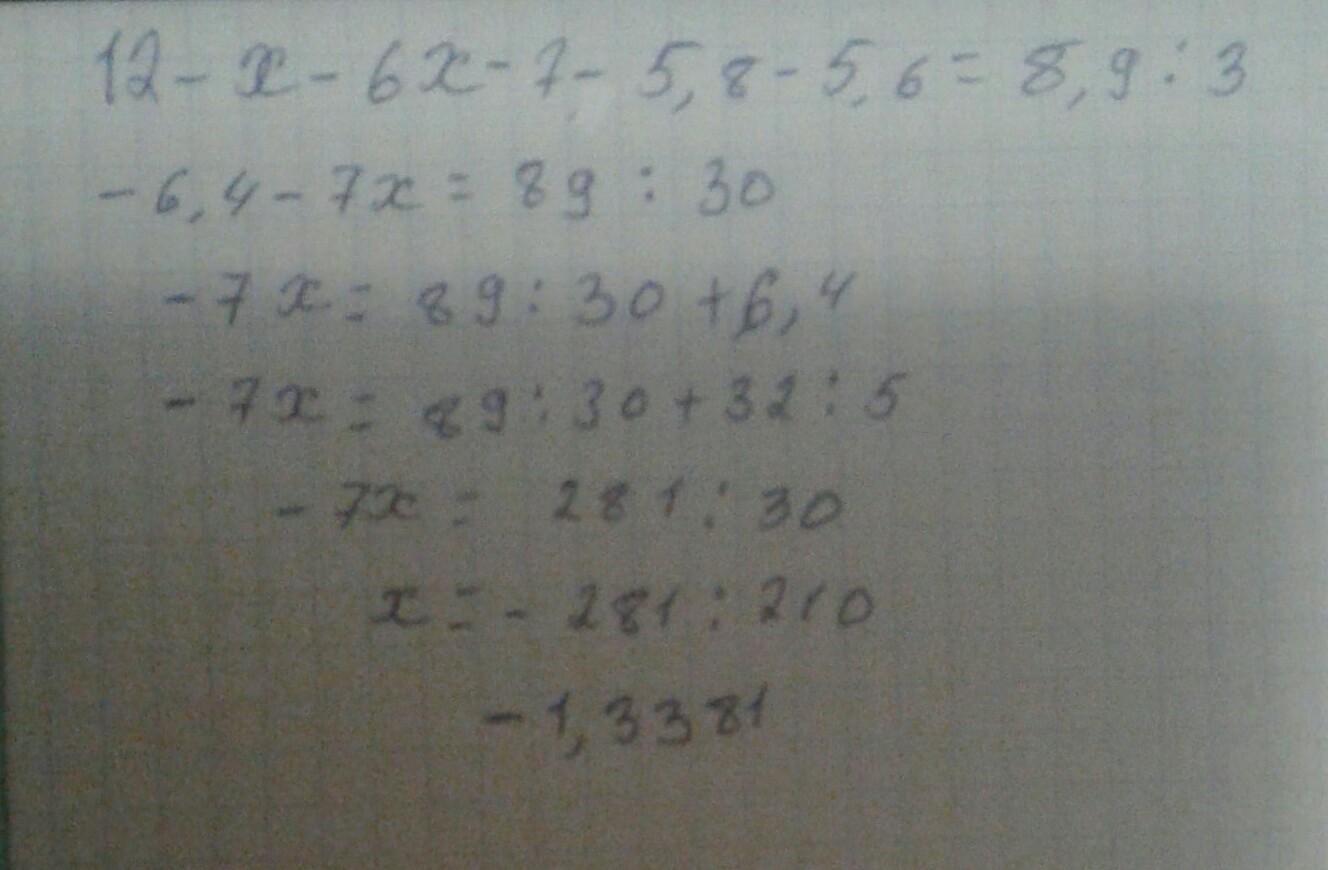 12 - x - 6x - 7 - 5,8 - 5,6 = 8,9 : 3
- 6,4 - 7x = 89 : 30
- 7x = 89 : 30 + 6,4
- 7x = 89 : 30 + 32 : 5
- 7x = 281 : 30
x = - 281 : 210
- 1,3381